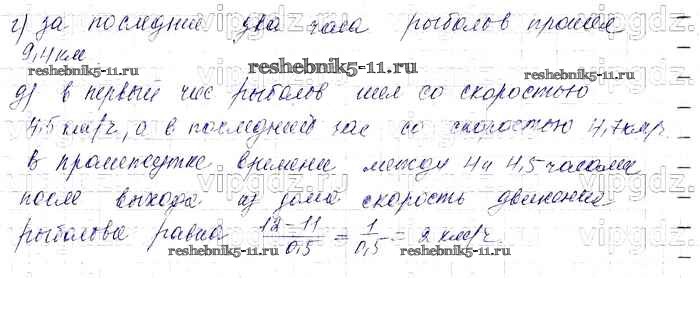 г) за последние два часа рыболов прошёл
9,4 км
reshebnik5-11.ru reshebnik5-11.ru
д) в первый час рыболов шел со скоростью
4,5 км/ч, а в последний час со скоростью 4,7 км/ч.
в промежутке времени между 4 и 4,5 часами
после выхода из дома скорость движения
рыболова равна 12-11/0,5 = 1/0,5 = 2 км/ч
reshebnik5-11.ru reshebnik5-11.ru